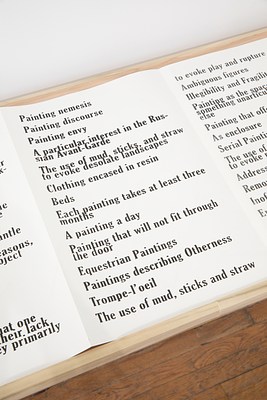 ntle
easons,
oject
hat one
their lack
ey primarily
Painting nemesis
Painting discourse
Painting envy
A particular interest in the Rus-
sian Avant-Garde
The use of mud, sticks, and straw
to evoke desolate landscapes
Clothing encased in resin
Beds
Each painting takes at least three
months
A painting a day
Painting that will not fit through
the door
Equestrian Paintings
Paintings describing Otherness
Trompe-l'oeil
The use of mud, sticks and straw
to evoke play and rupture
Ambiguous figures
Illegibility and Fragility
Painting as the spac
something unarticu
else
Painting that off
As enclosure
Serial Painti
The use of
to evoke
Address
Remo
Inoff
Es
E